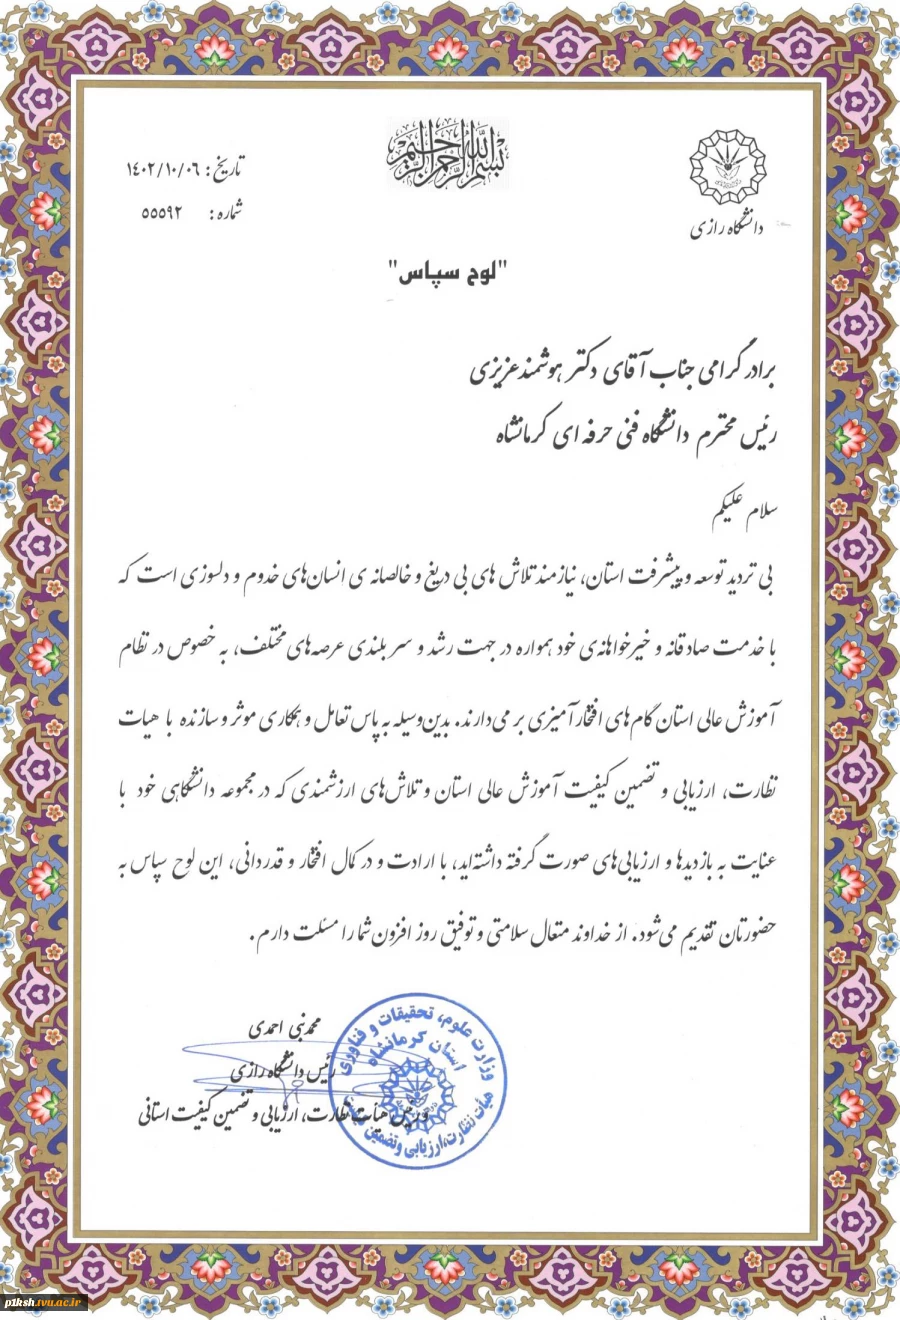 بسم الله الرحمن الرحیم
دانشگاه رازی
تاریخ: ۱۴۰۲/۱۰/۰۶
شماره: ۵۵۵۹۲
"لوح سپاس"
برادر گرامی جناب آقای دکتر هوشمند عزیزی
رئیس محترم دانشگاه فنی حرفه ای کرمانشاه
سلام علیکم
بی تردید توسعه و پیشرفت استان، نیازمند تلاش های بی دریغ و خالصانه ی انسان‌های خدوم و دلسوزی است که
با خدمت صادقانه و خیرخواهانه‌ی خود همواره در جهت رشد و سربلندی عرصه‌های مختلف، به خصوص در نظام
آموزش عالی استان گام های افتخارآمیزی بر می‌دارند. بدین‌وسیله به پاس تعامل و همکاری موثر و سازنده با هیات
نظارت، ارزیابی و تضمین کیفیت آموزش عالی استان و تلاش‌های ارزشمندی که در مجموعه دانشگاهی خود با
عنایت به بازدیدها و ارزیابی‌های صورت گرفته داشته‌اید، با ارادت و در کمال افتخار و قدردانی، این لوح سپاس به
حضورتان تقدیم می‌شود. از خداوند متعال سلامتی و توفیق روز افزون شما را مسئلت دارم.
محمدنبی احمدی
رئیس دانشگاه رازی
و رئیس هیأت نظارت، ارزیابی و تضمین کیفیت استانی
وزارت علوم، تحقیقات و فناوری
استان کرمانشاه
هیات نظارت، ارزیابی و تضمین کیفیت
p1ksh.tvu.ac.ir